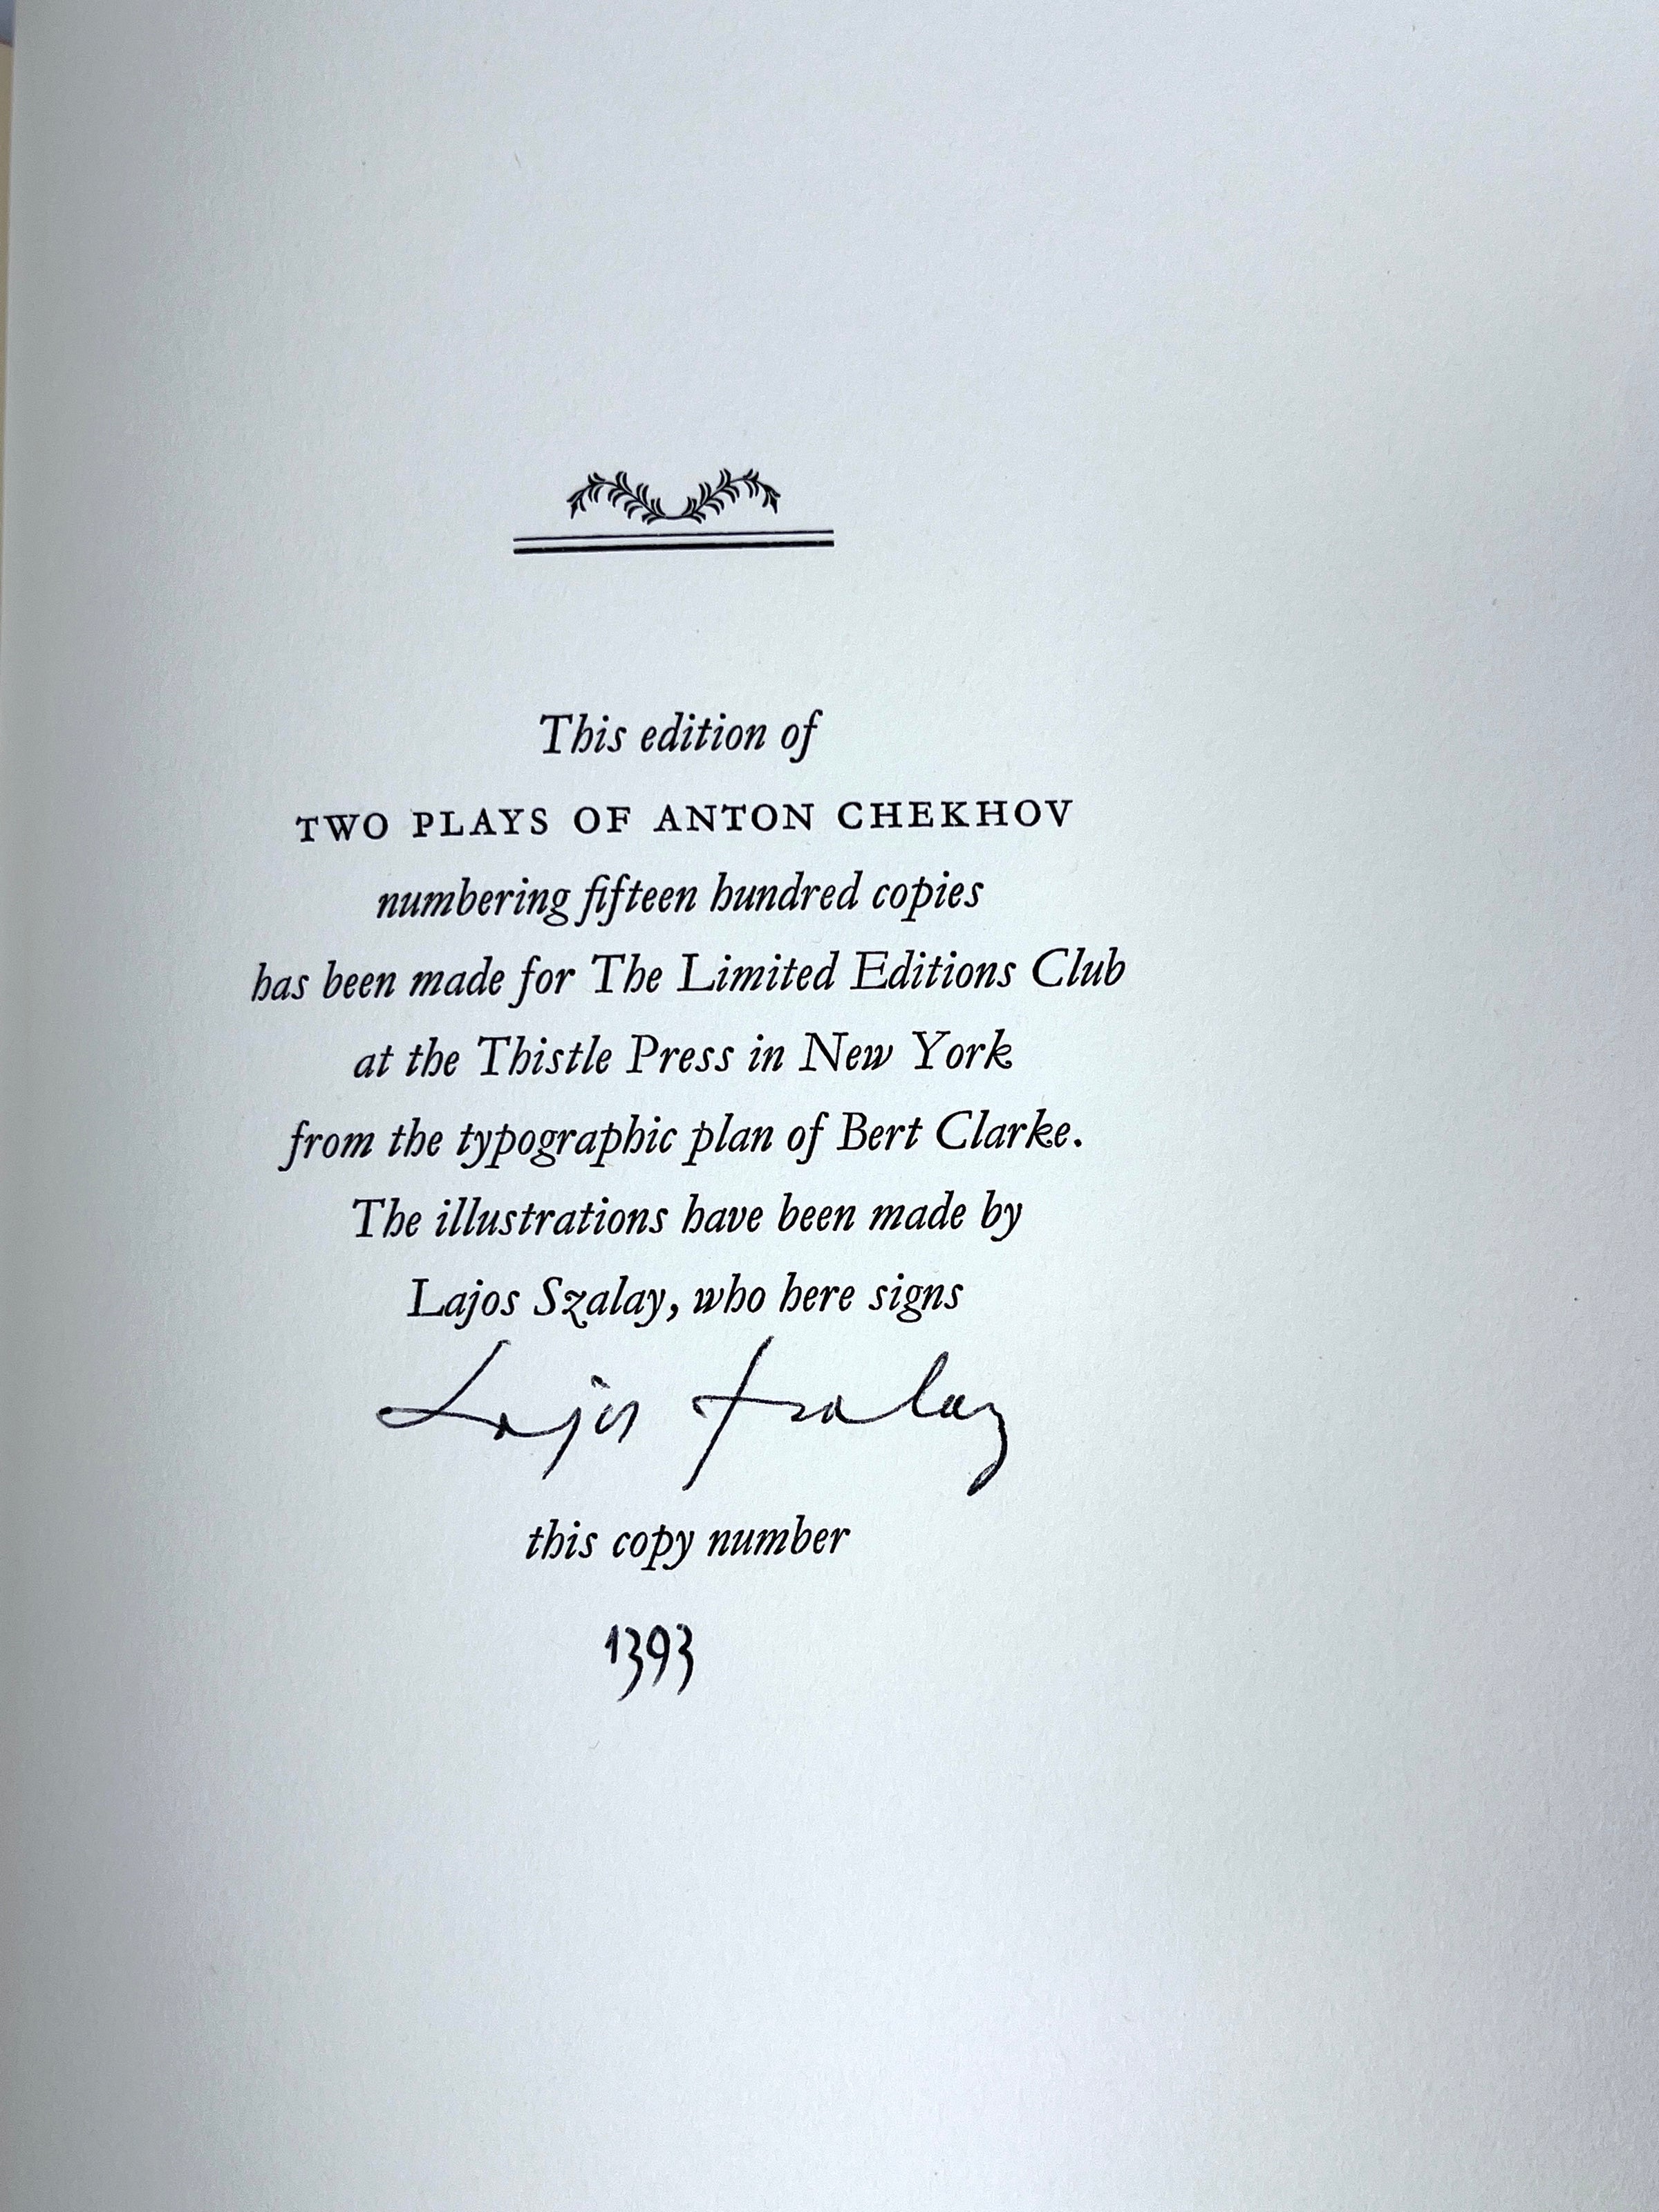 This edition of
TWO PLAYS OF ANTON CHEKHOV
numbering fifteen hundred copies
has been made for The Limited Editions Club
at the Thistle Press in New York
from the typographic plan of Bert Clarke.
The illustrations have been made by
Lajos Szalay, who here signs
Lajos Szalay
this copy number
1393